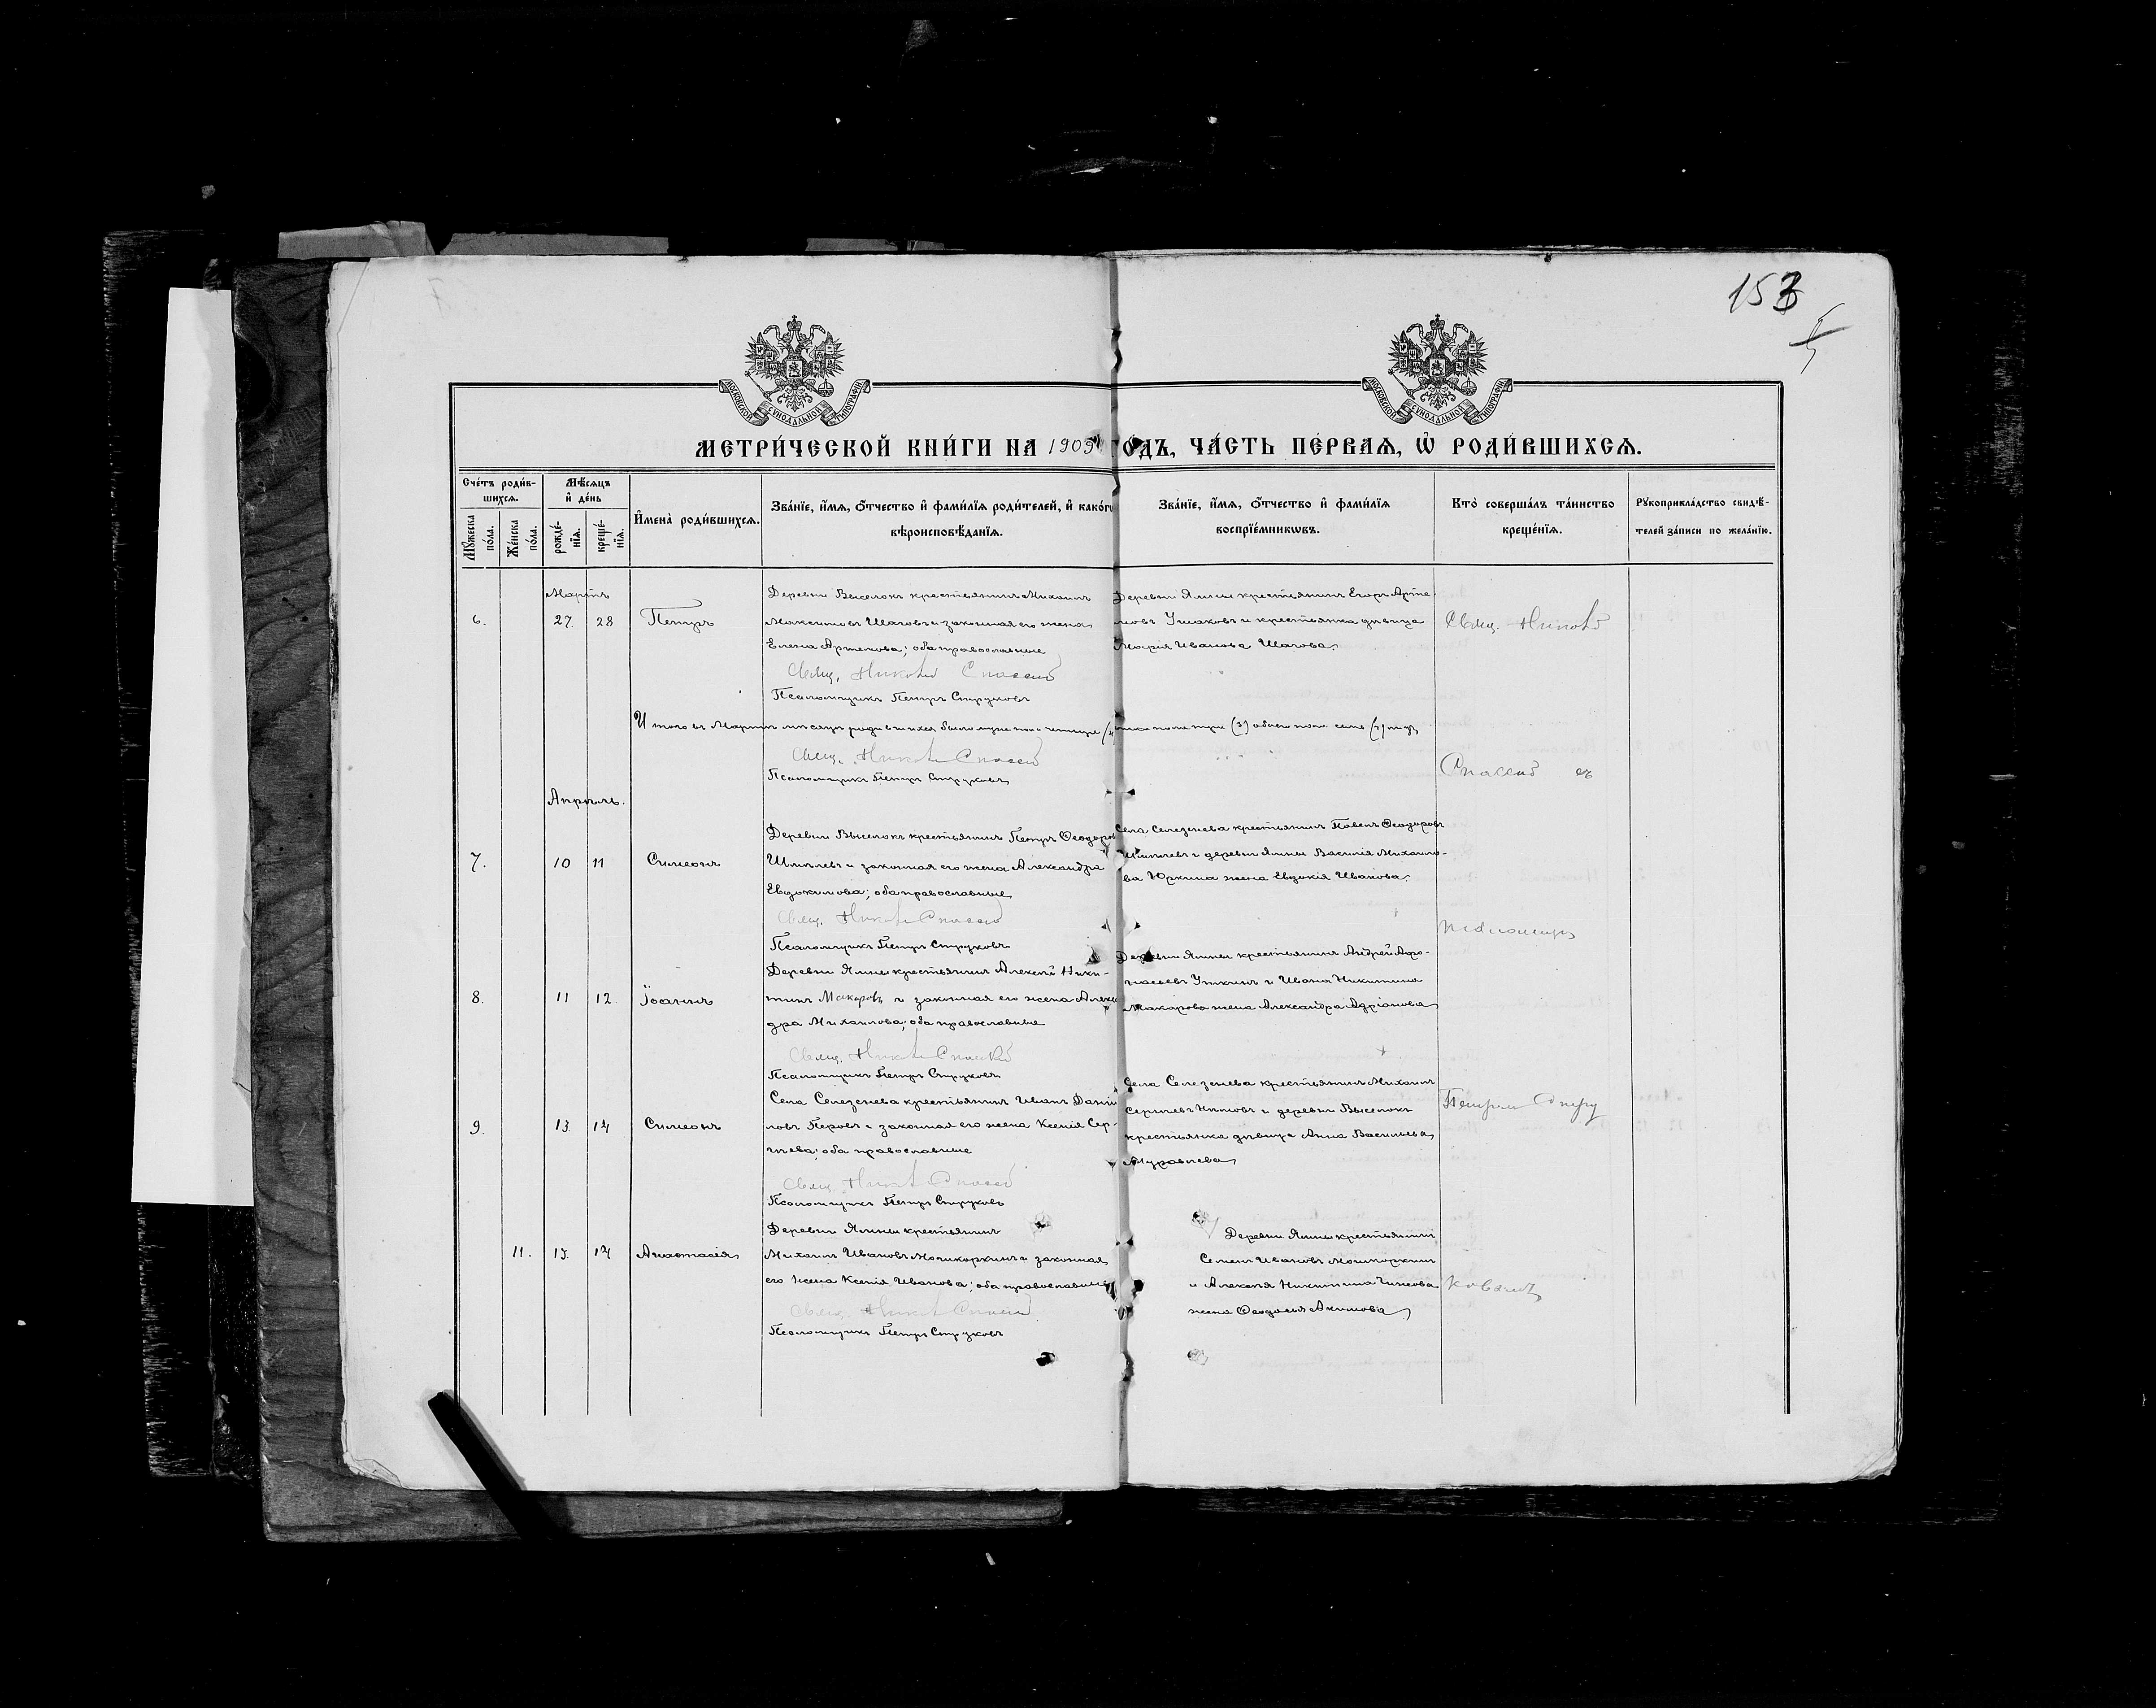 153
МОСКОВСКОЙ СѴНОДАЛЬНОЙ ТИПОГРАФІИ
МОСКОВСКОЙ СѴНОДАЛЬНОЙ ТИПОГРАФІИ
МЕТРИ́ЧЕСКОЙ КНИ́ГИ НА 1909 ГОДЪ, ЧА́СТЬ ПЕ́РВАЯ, Ѡ РОДИ́ВШИХСЯ.
Сче́тъ роди́в-
шихся.
Мѣ́сяцъ
и де́нь
Му́жеска
по́ла.
Же́нска
по́ла.
рожде́-
нія.
креще́-
нія.
Имена̀ роди́вшихся.
Зва́ніе, и́мя, о́тчество и фами́лія роди́телей, и како́гѡ
вѣроисповѣ́данія.
Зва́ніе, и́мя, о́тчество и фами́лія
воспріе́мникѡвъ.
Кто̀ соверша́лъ та́инство
креще́нія.
Рукоприкла́дство свидѣ́-
телей за́писи по жела́нію.
Мартъ
6. 27. 28 Петръ
Деревни Выселокъ крестьянинъ Михаилъ
Максимовъ Шаговъ и законная его жена
Елена Артемова; оба православные
Свящ. Николай Спасскій
Псаломщикъ Петръ Струковъ
Деревни Ялины крестьянинъ Егоръ Арте-
мовъ Ушаковъ и крестьянка дѣвица
Марія Иванова Шагова.
Свящ. Николай
Итого въ Мартѣ мѣсяцѣ родившихся было муж. пола четыре (4) женска пола три (3) обоего пола семь (7) м. и ж.
Свящ. Николай Спасскій
Псаломщикъ Петръ Струковъ
Спасскій съ
Апрѣль.
7. 10 11 Симеонъ
Деревни Выселокъ крестьянинъ Петръ Ѳеодоров
и законная его жена Александра
Евдокимова; оба православные
Свящ. Николай Спасскій
Псаломщикъ Петръ Струковъ
Села Селезнева крестьянинъ Павелъ Ѳеодоровъ
и деревни Ялины Василія Михаило-
ва Юркина жена Евдокія Иванова.
псаломщи
8. 11 12 Іоаннъ
Деревни Ялины крестьянинъ Алексѣй Ники-
тинъ Макаровъ и законная его жена Алекса
дра Михаилова; оба православные
Свящ. Николай Спасскій
Псаломщикъ Петръ Струковъ
Деревни Ялины крестьянинъ Андрей Аѳо-
насьевъ Уткинъ и Ивана Никитина
Макарова жена Александра Адріанова
9. 13. 14 Симеонъ
Села Селезнева крестьянинъ Иванъ Даніи
ловъ Перовъ и законная его жена Ксенія Сер-
гѣева; оба православные
Свящ. Николай Спасскій
Псаломщикъ Петръ Струковъ
Села Селезнева крестьянинъ Михаилъ
Сергѣевъ и деревни Выселокъ
крестьянка дѣвица Анна Васильева
Муравлева
Петромъ Стру
11. 13. 14 Анастасія
Деревни Ялины крестьянинъ
Михаилъ Ивановъ и законная
его жена Ксенія Иванова; оба православные
Свящ. Николай Спасскій
Псаломщикъ Петръ Струковъ
Деревни Ялины крестьянинъ
Семенъ Ивановъ
и Алексѣя Никитина
жена Ѳеодосья Акимова
ковымъ